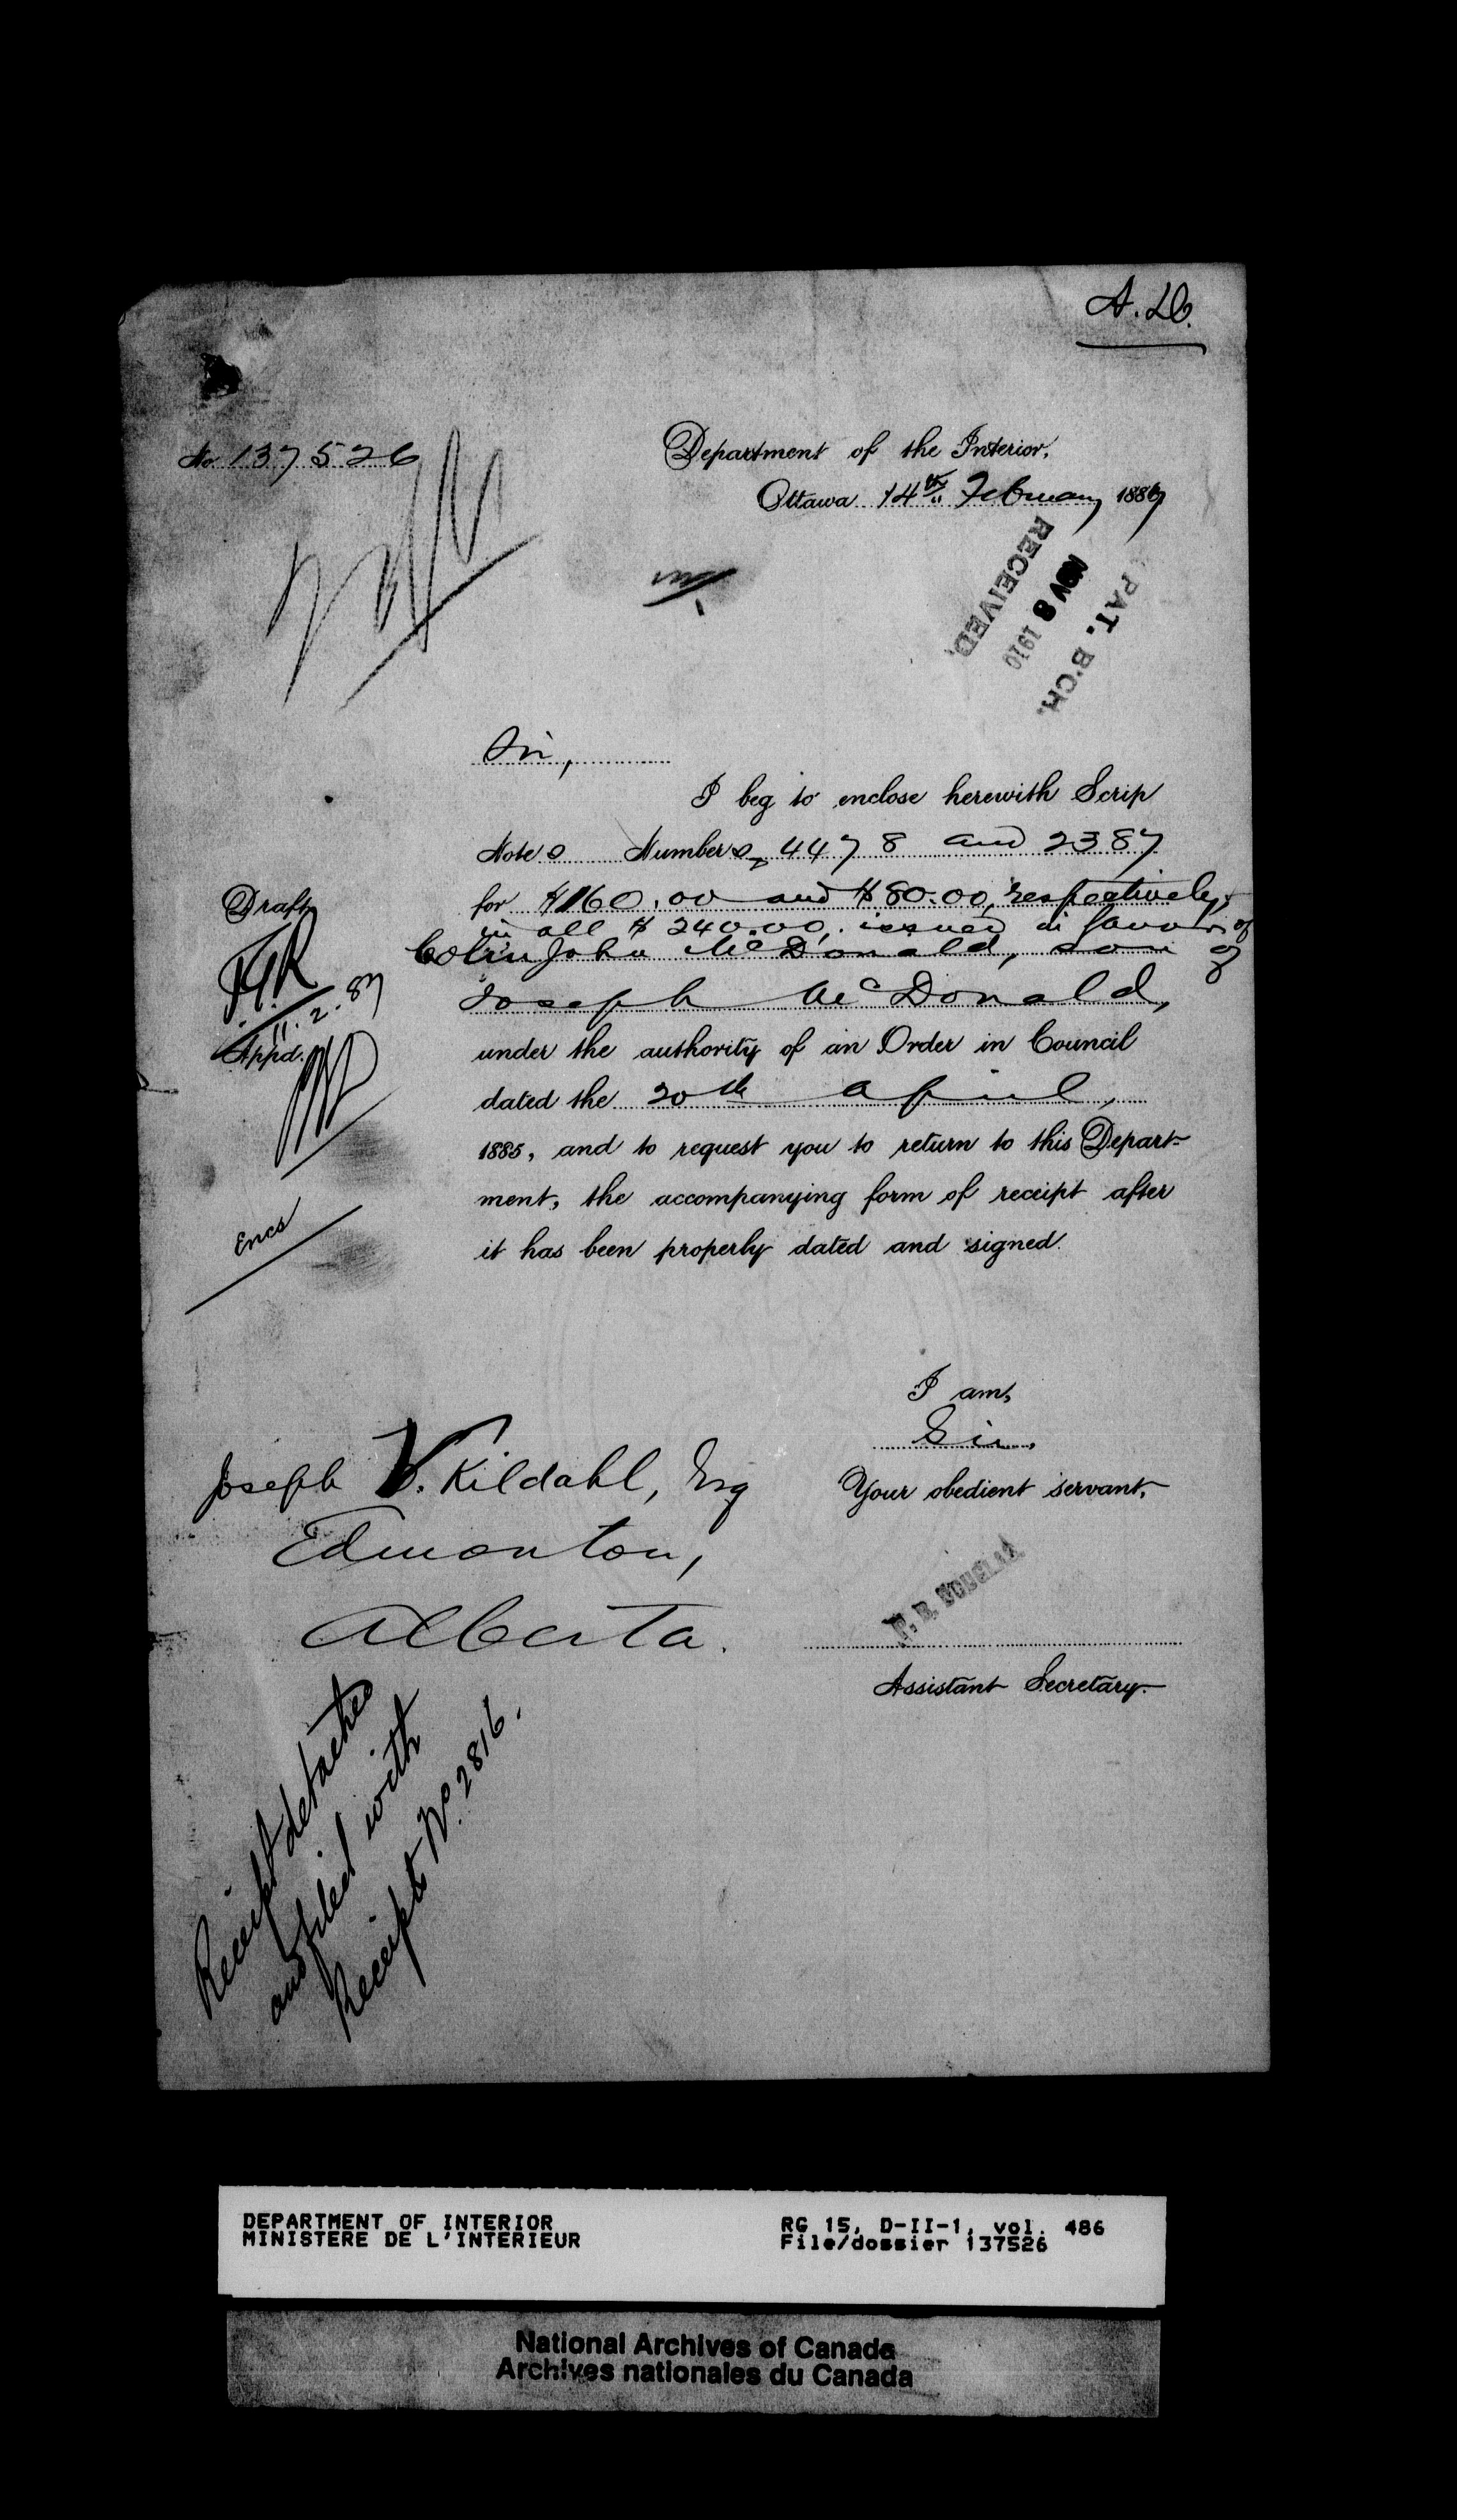 A. D.
No 137526
Department of the Interior,
Ottawa 14th February 1887
PAT. B'CH.
NOV 8 1910
RECEIVED.
Sir,
I beg to enclose herewith Scrip
Notes Numbers 4478 and 2387
for $160.00 and $80.00, respectively,
in all $240.00, issued in favor of
Colin John McDonald, son of
Joseph McDonald,
under the authority of an Order in Council
dated the 20th April,
1885, and to request you to return to this Depart-
ment, the accompanying form of receipt after
it has been properly dated and signed.
Draft
11.2.87
Appd.
Encs
I am,
Sir,
Your obedient servant,
P. B. DOUGLAS.
Assistant Secretary.
Joseph V. Kildahl, Esq
Edmonton,
Alberta.
Receipt detached
and filed with
Receipt No. 2816.
DEPARTMENT OF INTERIOR
MINISTERE DE L'INTERIEUR
RG 15, D-II-1, vol. 486
File/dossier 137526
National Archives of Canada
Archives nationales du Canada